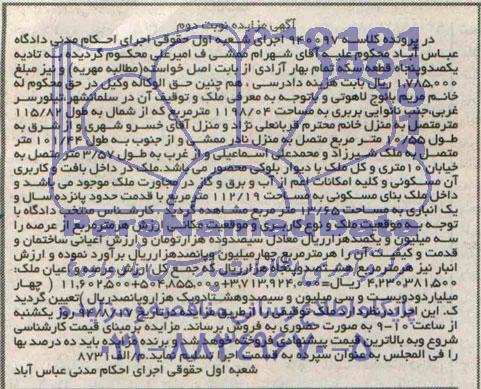 آگهی مزایده نوبت دوم
در پرونده کلاسه ۹۴۰۰۹۷ اجرای شعبه اول حقوقی اجرای احکام مدنی دادگاه
عباس آباد محکوم علیه آقای شهرام ممشی ف امیرعلی محکوم گردیده به تادیه
یکصدوپنجاه قطعه سکه تمام بهار آزادی از بابت اصل خواسته(مطالبه مهریه) و نیز مبلغ
ریال بابت هزینه دادرسی و هم چنین حق الوکاله وکیل در حق محکوم له
خانم مریم بانوج لاهوتی و باتوجه به معرفی ملک و توقیف آن در سلمانشهر،تیلورسر
غربی،جنب نانوایی بربری به مساحت ۱۱۹۸/۰۴ مترمربع که از شمال به طول ۱۱۵/۸۲
مترمتصل به منزل خانم محترم قربانعلی نژاد و منزل آقای خسرو شهری و از شرق به
طول متر مربع متصل به منزل نادر ممشی و از جنوب به طول متر
متصل به ملک شیرزاد و محمدتقی اسماعیلی و از غرب به طول ۳/۵۷ متر متصل به
خیابان ۱۰ متری و کل ملک با دیوار بلوکی محصور می باشد.ملک در داخل بافت و کاربری
آن مسکونی و کلیه امکانات اعم از آب و برق و گاز در مجاورت ملک موجود می باشد و
داخل ملک بنای مسکونی به مساحت ۱۱۲/۱۹ مترمربع با قدمت حدود پانزده سال و
یک انباری به مساحت ۱۳/۶۵ متر مربع مشاهده گردید. کارشناس منتخب دادگاه با
توجه به موقعیت ملک و نوع کاربری و موقعیت مکانی ارزش هرمترمربع از عرصه را
سه میلیون و یکصدهزارریال معادل سیصدوده هزارتومان و ارزش اعیانی ساختمان و
قدمت و کیفیت آن را هرمترمربع چهارمیلیون و پانصدهزارریال برآورد نموده و ارزش
انبار نیز هرمترمربع هشتصدوپنجاه هزارریال که جمع کل ارزش عرصه و اعیان ملک:
۴,۲۳۰,۳۸۱,۵۰۰ ریال=۳,۷۱۳,۹۲۴,۰۰۰+۵۰۴,۸۵۵,۰۰۰+۱۱,۶۰۲,۵۰۰ ( چهار
میلیاردودویست و سی میلیون و سیصدوهشتادویک هزاروپانصدریال )تعیین گردید
ک. این اجرا درنظردارد ملک توقیفی را از طریق مزایده بتاریخ روز یکشنبه
از ساعت ۱۰-۹ به صورت حضوری به فروش برساند. مزایده برمبنای قیمت کارشناسی
شروع وبه بالاترین قیمت پیشنهادی فروخته خواهدشد و برنده مزایده باید ده درصد بها
را فی المجلس به عنوان سپرده به قسمت اجرا تسلیم نماید.م/الف ۸۷۳
شعبه اول حقوقی اجرای احکام مدنی عباس آباد
پایگاه اطلاع رسانی مناقصه و مزایده